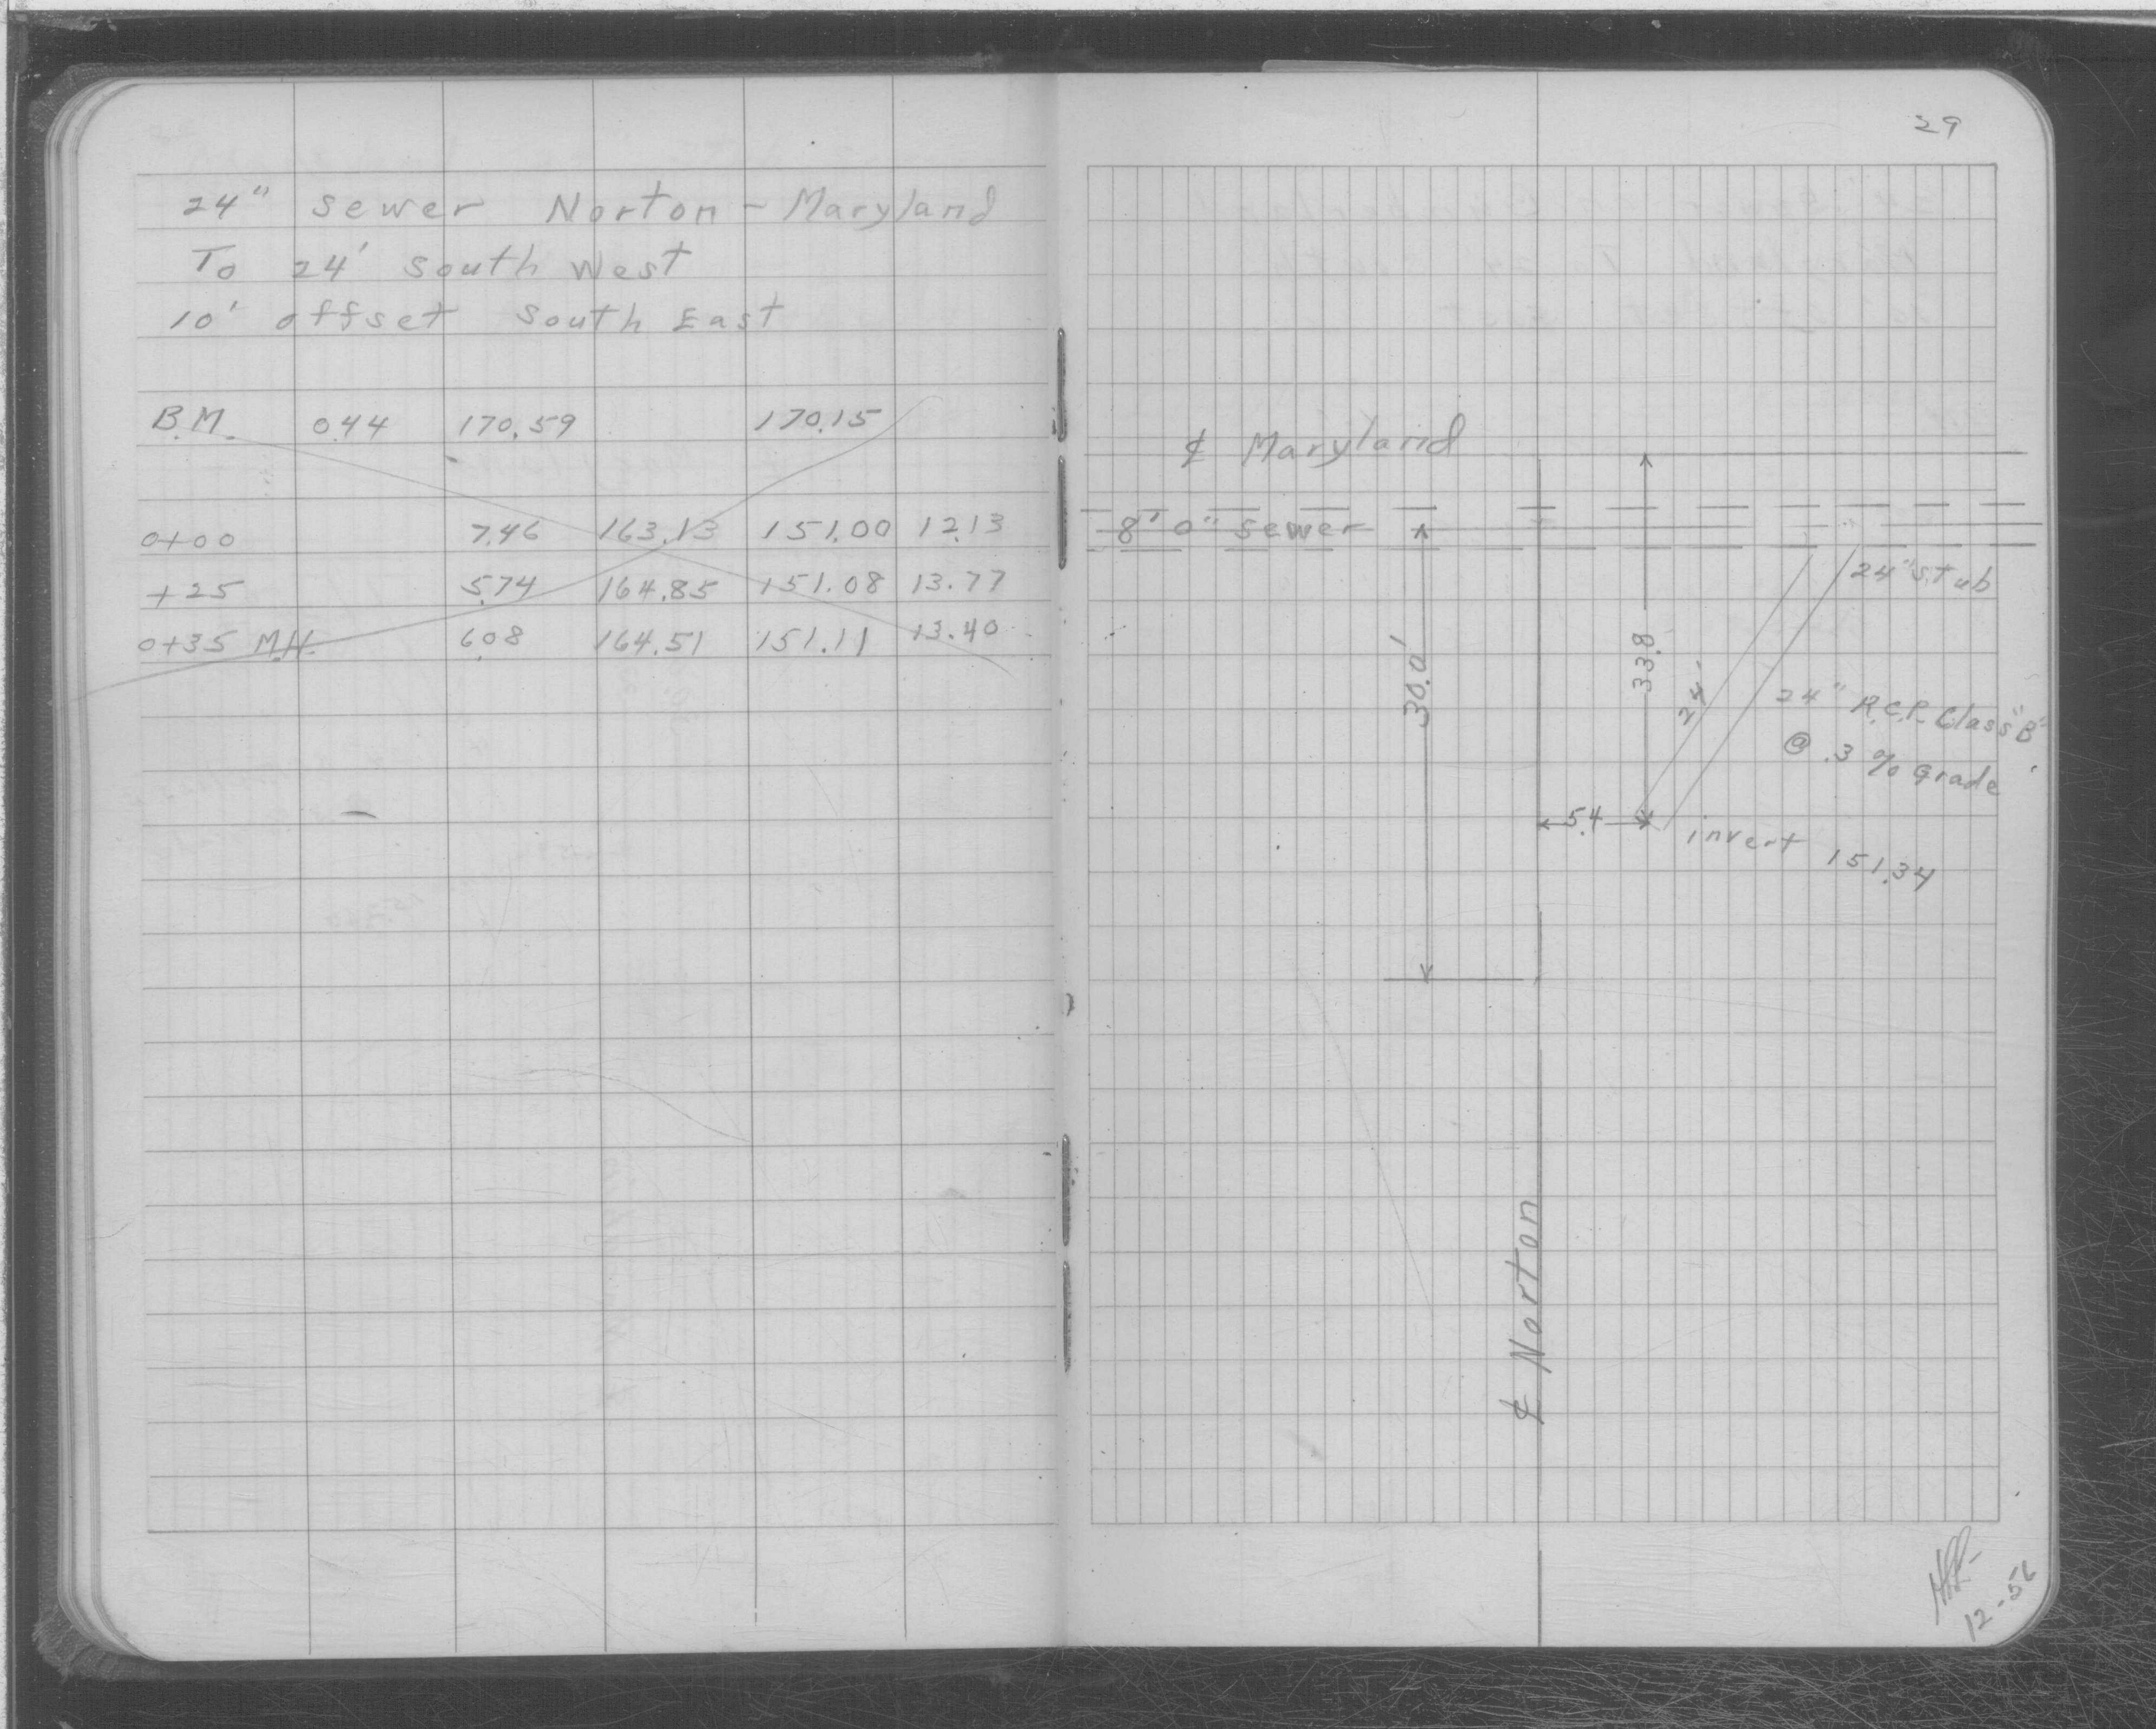 24" sewer Norton - Maryland
To 24' south west
10' offset south East
B.M. 0.44 170.59 170.15
0+00 7.46 163.13 151.00 12.13
+25 5.74 164.85 151.08 13.77
0+35 M.H. 6.08 164.51 151.11 13.40
29
℄ Maryland
8' 0" sewer
24" stub
30.0'
33.8
24'
24" R.C.P. Class "B"
@ .3 % Grade
5.4
invert 151.34
℄ Norton
12-56